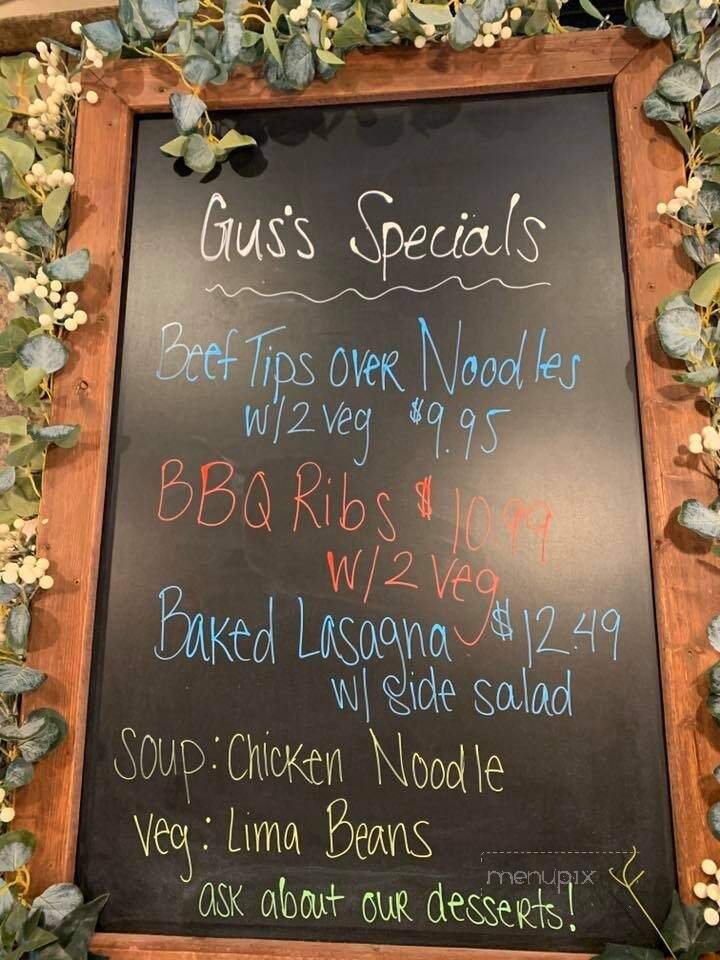 Gus's Specials
Beef Tips over Noodles
w/2 veg $9.95
BBQ Ribs $10.99
w/2 veg
Baked Lasagna $12.49
w/ side salad
Soup: Chicken Noodle
Veg: Lima Beans
ask about our desserts!
menupix